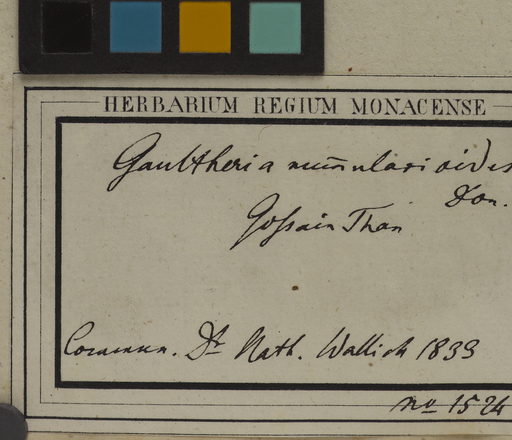 HERBARIUM REGIUM MONACENSE
Gaultheria num̅ularioides
Don.
Gossain Than
Commun. Dr. Nath. Wallich 1833
No 1524